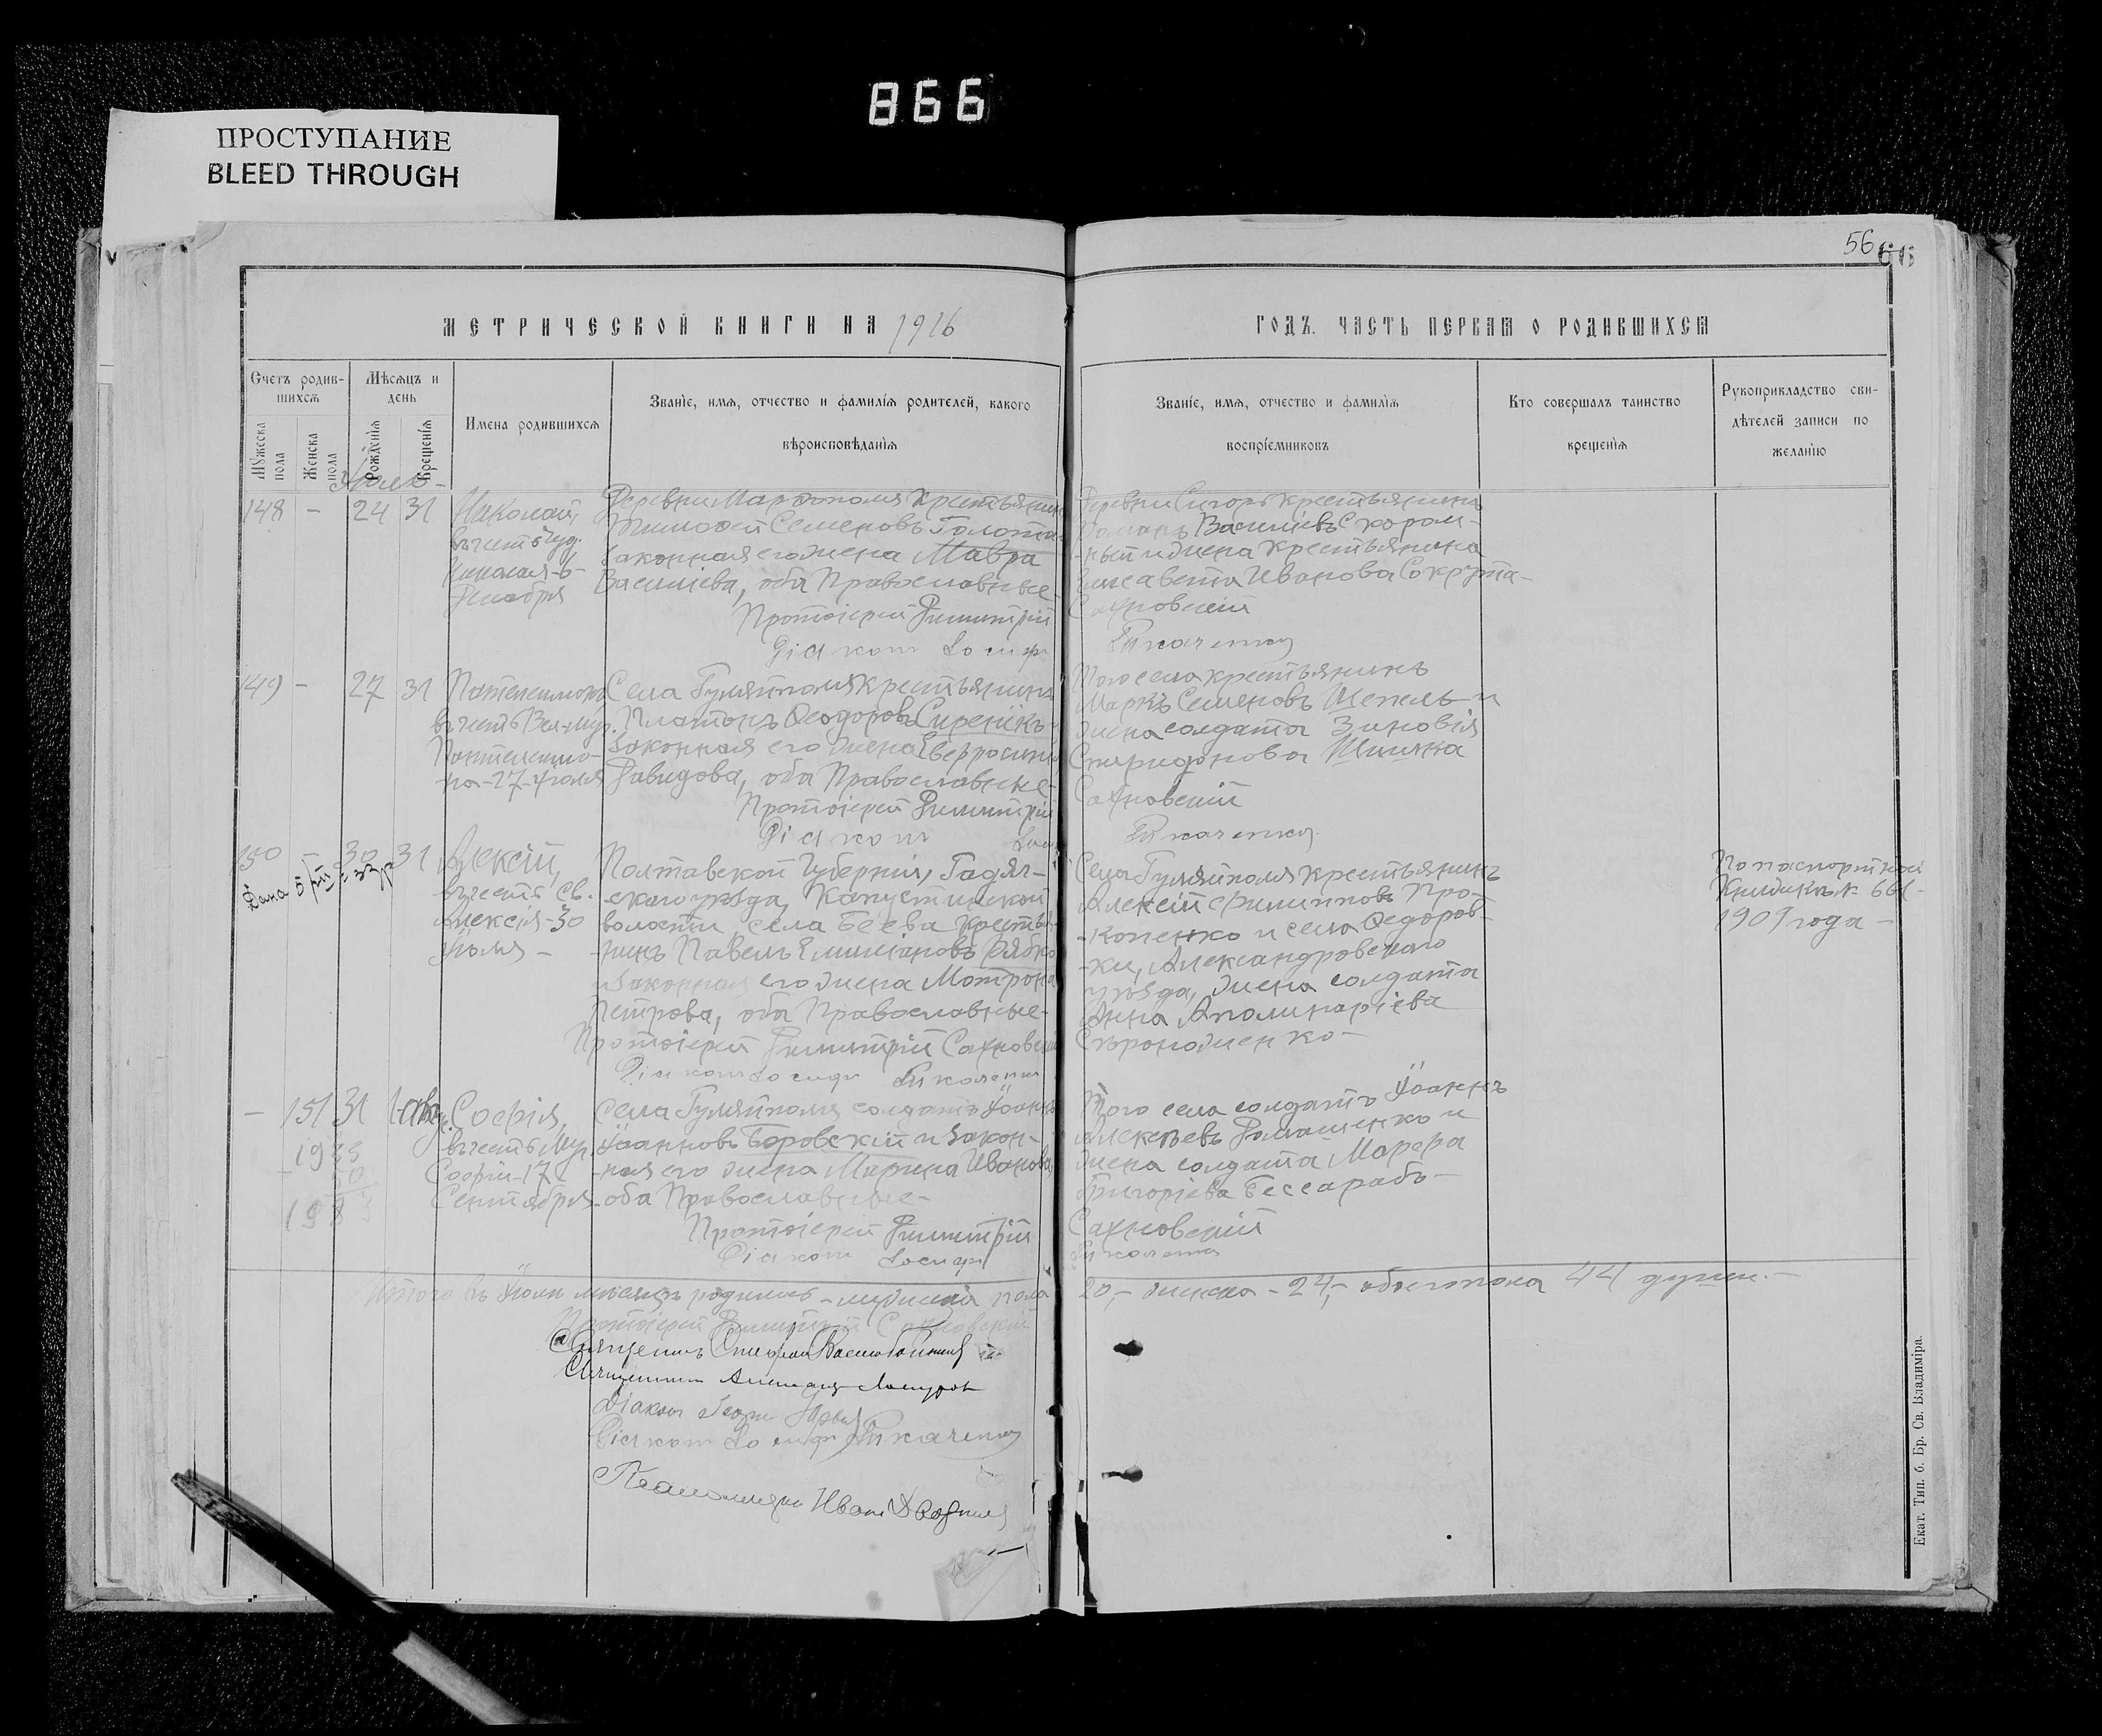 866
ПРОСТУПАНИЕ
BLEED THROUGH
56
66
МЕТРИЧЕСКОЙ КНИГИ НА 1916
ГОДЪ. ЧАСТЬ ПЕРВАЯ О РОДИВШИХСЯ
Счетъ родив-
шихся
Мѣсяцъ и
день
Мужеска
пола
Женска
пола
Рожденія
Крещенія
Имена родившихся
Званіе, имя, отчество и фамилія родителей, какого
вѣроисповѣданія
Званіе, имя, отчество и фамилія
воспріемниковъ
Кто совершалъ таинство
крещенія
Рукоприкладство сви-
дѣтелей записи по
желанію
148 - 24 31
Николай,
въ честь Чуд.
Николая - 6 -
Декабря
Деревни Марфополя крестьянинъ
Тимофей Семеновъ Голота
законная его жена Мавра
Василіева, оба Православные
Протоіерей Димитрій
Діаконъ Іосифъ
Деревни крестьянинъ
Романъ Василіевъ Скором-
-ный и жена крестьянина
Елисавета Иванова Сокрута-
Сахновскій
Ткаченко
149 - 27 31
Пантелеимонъ
въ честь Вел-муч.
Пантелеимо-
на - 27 - Іюля
Села Гуляйполя крестьянинъ
Платонъ Ѳеодоровъ Сиренікъ
законная его жена Евфросинія
Давидова, оба Православные -
Протоіерей Димитрій
Діаконъ
Того села крестьянинъ
Маркъ Семеновъ Шепель и
жена солдата Зиновія
Спиридонова Шишка
Сахновскій
Ткаченко
150 - 30 31
Алексій,
въ честь св.
Алексія - 30
Іюля -
Полтавской Губерніи, Гадяч-
-скаго уѣзда, Капустинской
волости, села Беева крестья-
-нинъ Павелъ Емиліановъ Рябко
и законная его жена Мотрона
Петрова, оба Православные -
Протоіерей Димитрій Сахновскій
Діаконъ Іосифъ Ткаченко
Села Гуляйполя крестьянинъ
Алексій Филипповъ Про-
-копенко и села Ѳедоров-
-ки, Александровскаго
уѣзда, жена солдата
Анна Аполинаріева
По паспортной
Книжкѣ № 661 -
1909 года -
- 151 31 1 Авг.
Софія,
въ честь Муч.
Софіи - 17
Сентября
Села Гуляйполя солдатъ Іоаннъ
Іоанновъ Боровскій и закон-
-ная его жена Марина Иванова,
оба Православные -
Протоіерей Димитрій
Діаконъ Іосифъ
Того села солдатъ Іоаннъ
Алексѣевъ Ромашенко и
жена солдата Марфа
Григоріева Бессарабъ -
Сахновскій
Ткаченко
Итого въ Іюлѣ мѣсяцѣ родилось - мужеска пола
20, - женска - 24, - обоего пола 44 душъ. -
Протоіерей Димитрій Сахновскій
Священникъ
Священникъ
Діаконъ
Діаконъ Іосифъ Ткаченко
Псаломщикъ Иванъ
Екат. Тип. б. Бр. Св. Владиміра.